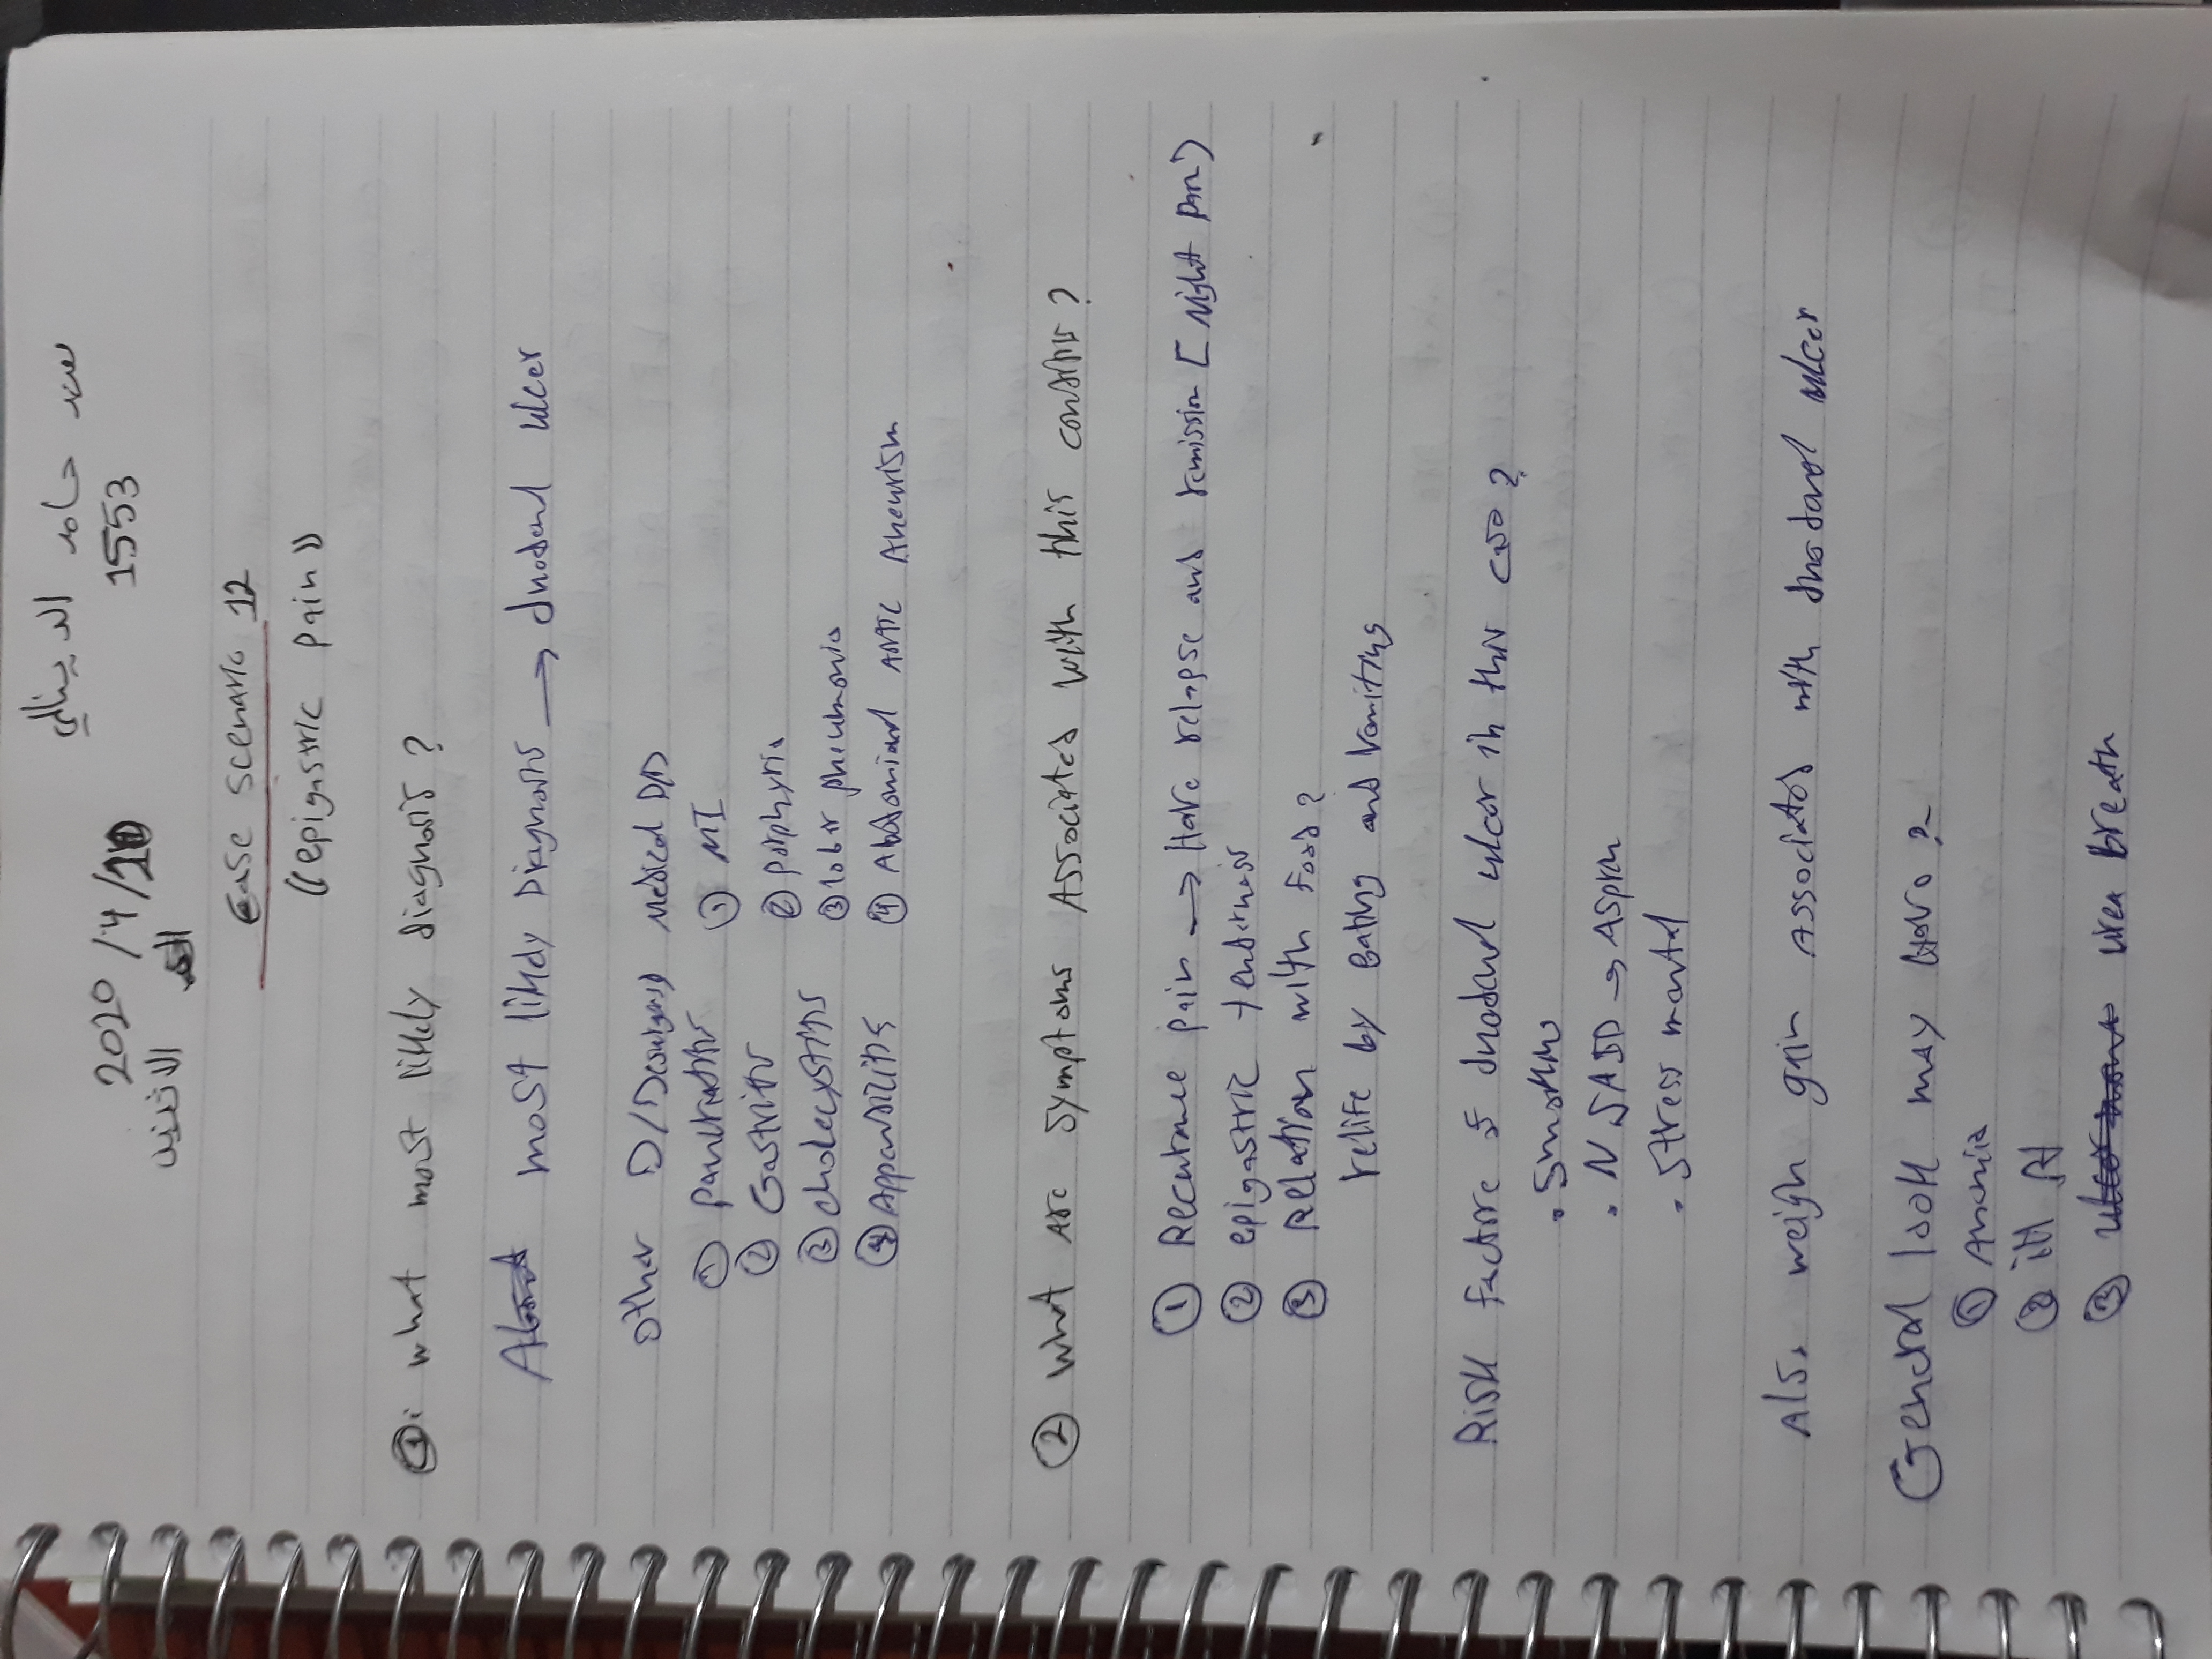 2020/4/20
الاثنين
1553
Case scenario 12
((epigastric pain))
①: what most likely diagnosis?
most likely Diagnosis → duodenal ulcer
other D/D Medical DD
① ① MI
② Gastritis ② porphyria
③ cholecystitis ③ lobar pneumonia
④ Appendicitis ④ Abdominal aortic Aneurism
② What are symptoms Associated with this condition?
① Recurrence pain → Have relapse and remission [Night pain)
② epigastric tenderness
③ Relation with food?
relife by Eating and Vomiting
Risk factors of duodenal ulcer in this case?
. Smoking
. NSAID → Aspirin
. Stress mental
Also weigh gain Associated with duodenal ulcer
General look may have?
① Anemia
② ill
③ urea breath